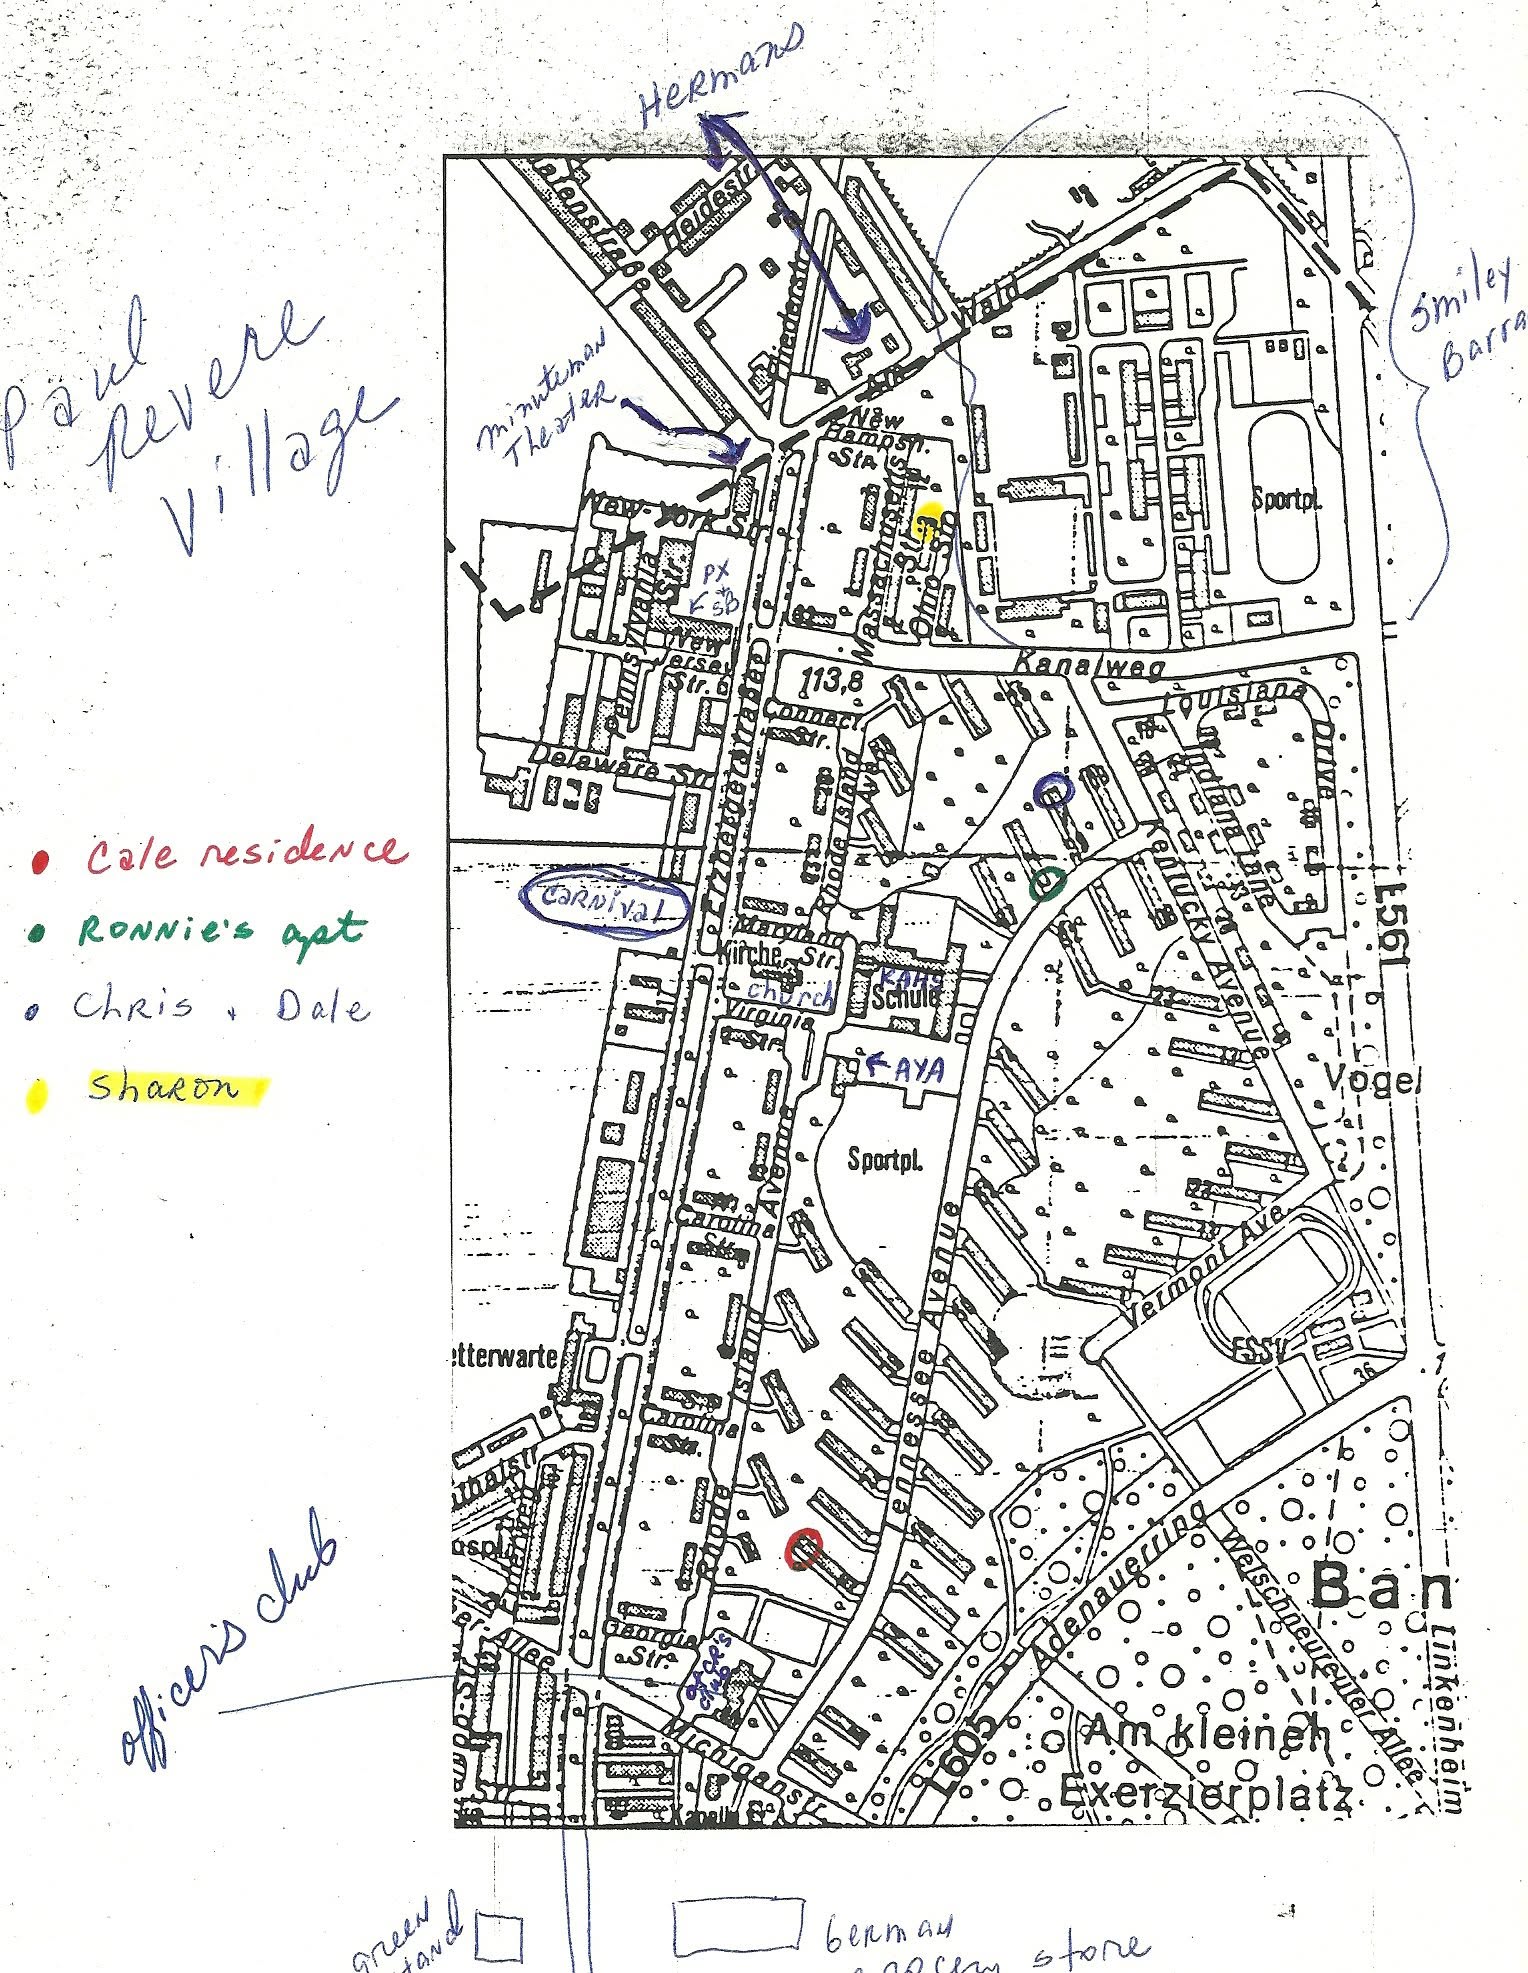 Hermans
Heidestr.
Niederstr
Smiley
Paul
Revere
Village
Minuteman
Theater
Wald
New
Hampsh.
Str.
New-York
Massachusetts
Str.
Ohio Str.
Sportpl.
Pennsylvania
Str.
PX
+
SB
New
Jersey
Str.
Kanalweg
113,8
Louisiana
Drive
Connect.
Str.
Delaware Str.
Erzbergerstraße
Rhode Island
Ave
Indiana Lane
Kentucky Avenue
E561
• Cale residence
• Ronnie's apt
• Chris + Dale
• Sharon
Carnival
Maryland
Str.
Kirche
church
KAHS
Schule
Virginia
Str.
← AYA
23
Vogel
Sportpl.
Avenue
Carolina
Str.
22
Vermont Ave.
Tennessee Avenue
ESSV
36
etterwarte
Island
Carolina
Str.
Rhode
Adenauerring
Welschneureuter Allee
Ban
Linkenheim
officer's club
Allee
Georgia
Str.
Michiganstr.
L605
Am kleinen
Exerzierplatz
green
German
store